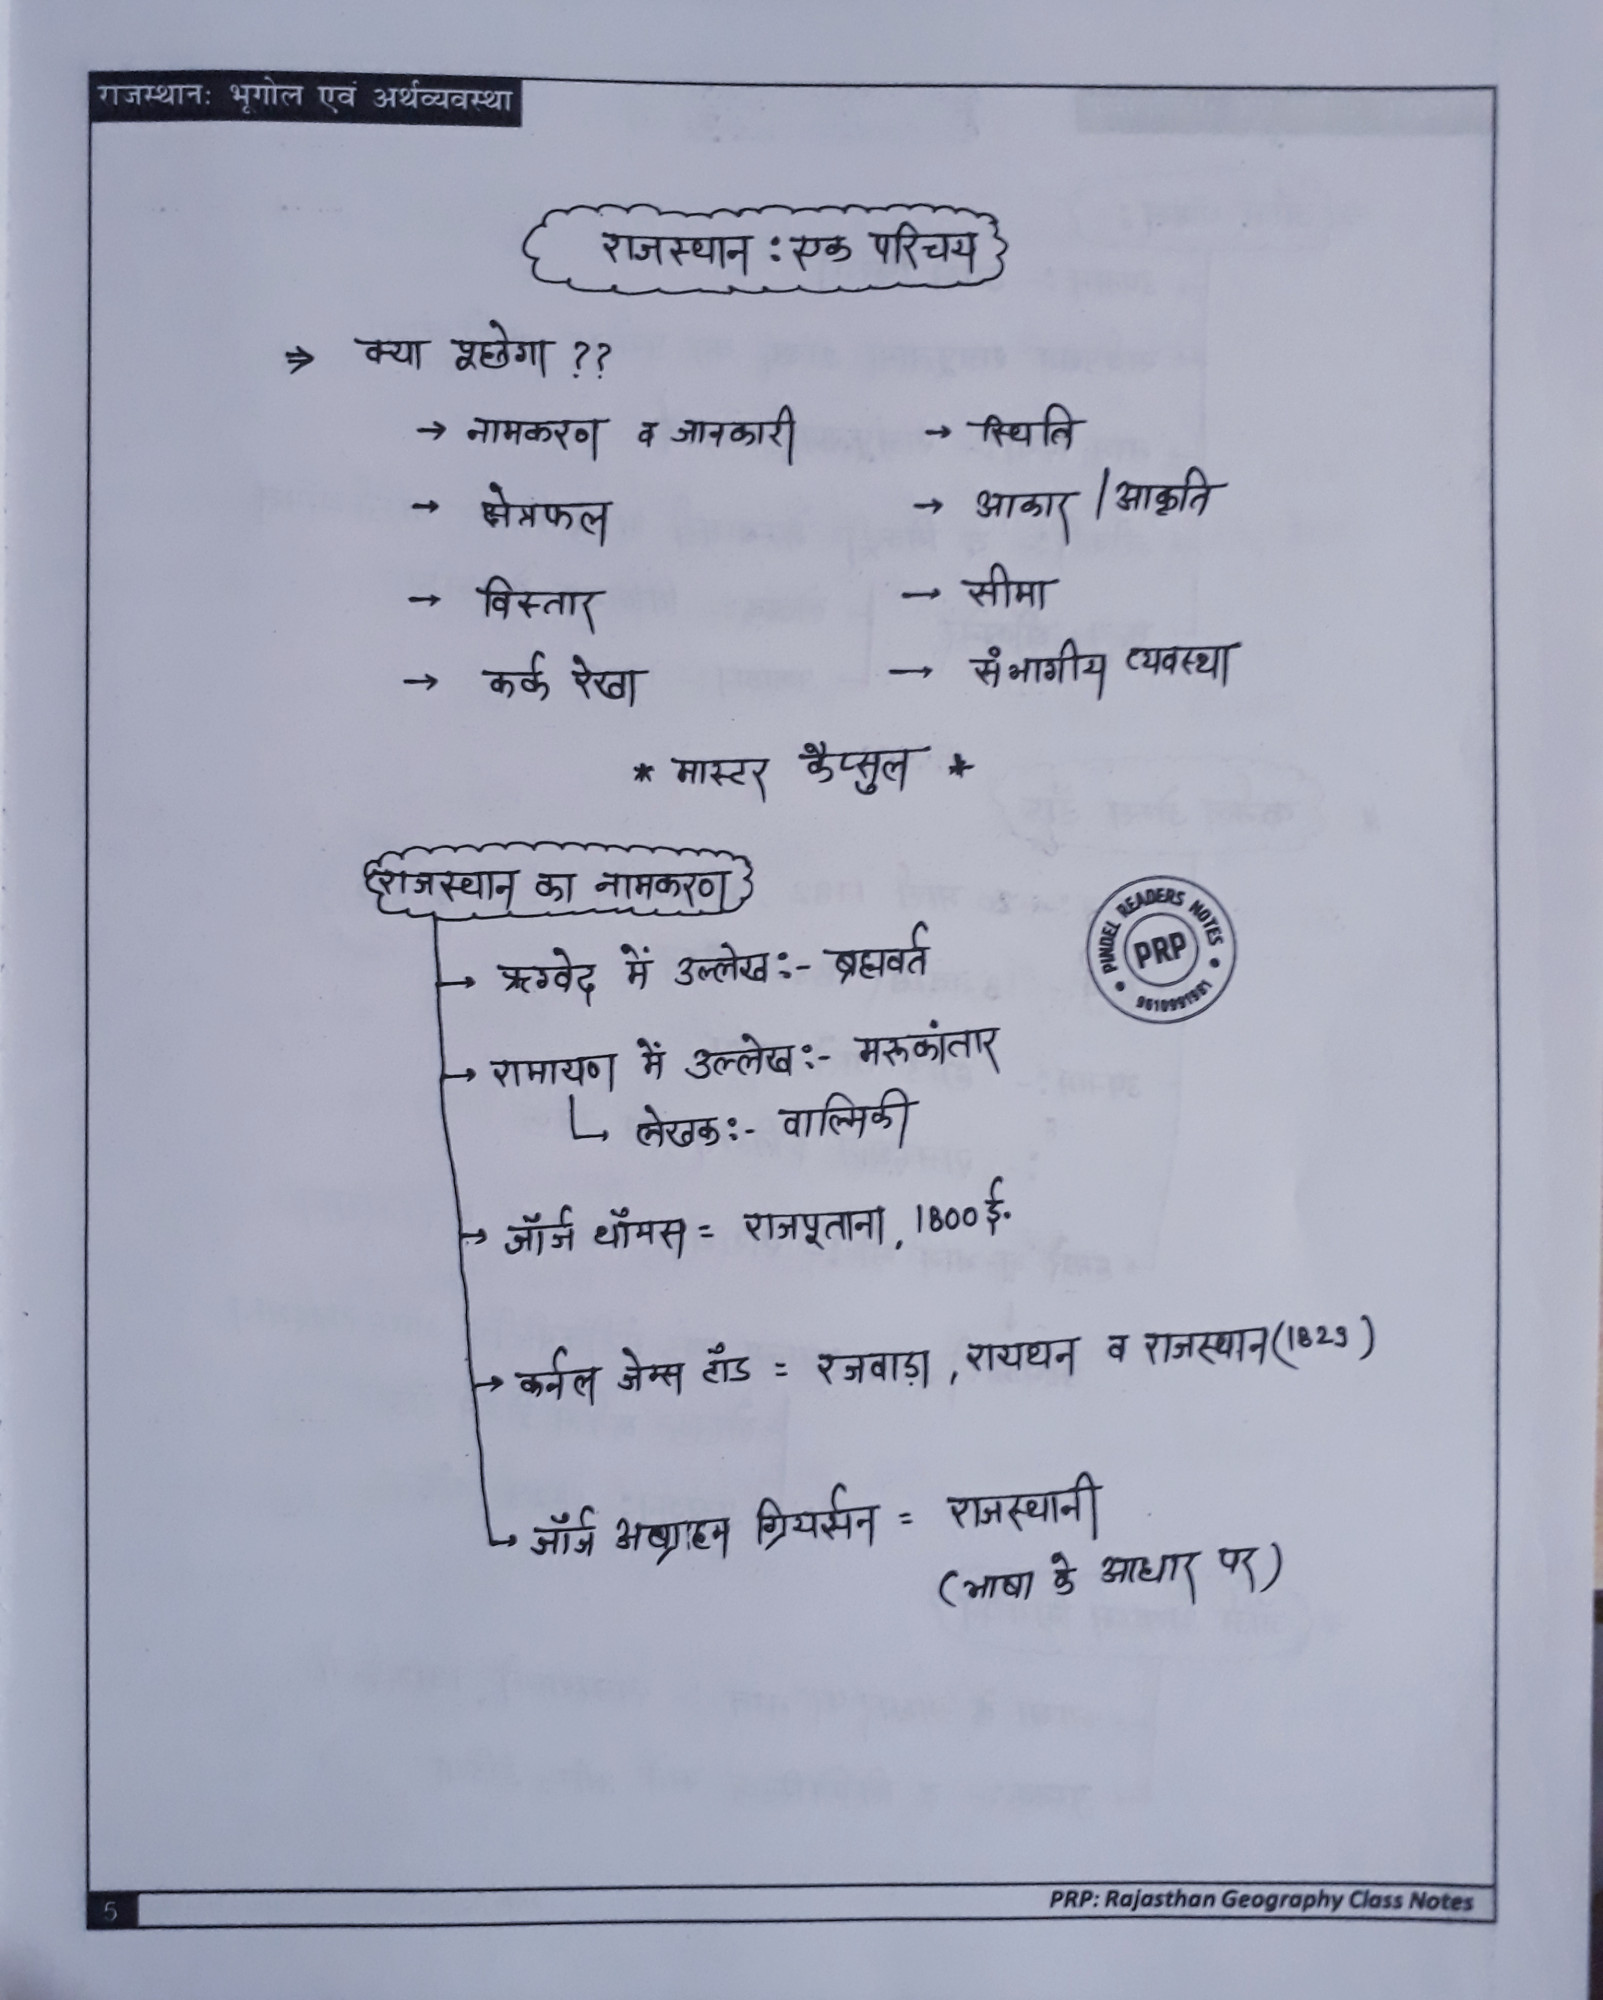 राजस्थान: भूगोल एवं अर्थव्यवस्था
राजस्थान : एक परिचय
⇒ क्या पूछेगा ??
→ नामकरण व जानकारी → स्थिति
→ क्षेत्रफल → आकार / आकृति
→ विस्तार → सीमा
→ कर्क रेखा → संभागीय व्यवस्था
* मास्टर कैप्सुल *
राजस्थान का नामकरण
→ ऋग्वेद में उल्लेख :- ब्रह्मवर्त
PINDEL READERS NOTES
PRP
9610991981
→ रामायण में उल्लेख :- मरुकांतार
↳ लेखक :- वाल्मिकी
→ जॉर्ज थॉमस = राजपूताना, 1800 ई.
→ कर्नल जेम्स टॉड = रजवाड़ा, रायथन व राजस्थान (1829)
→ जॉर्ज अब्राहम ग्रियर्सन = राजस्थानी
(भाषा के आधार पर)
5
PRP: Rajasthan Geography Class Notes